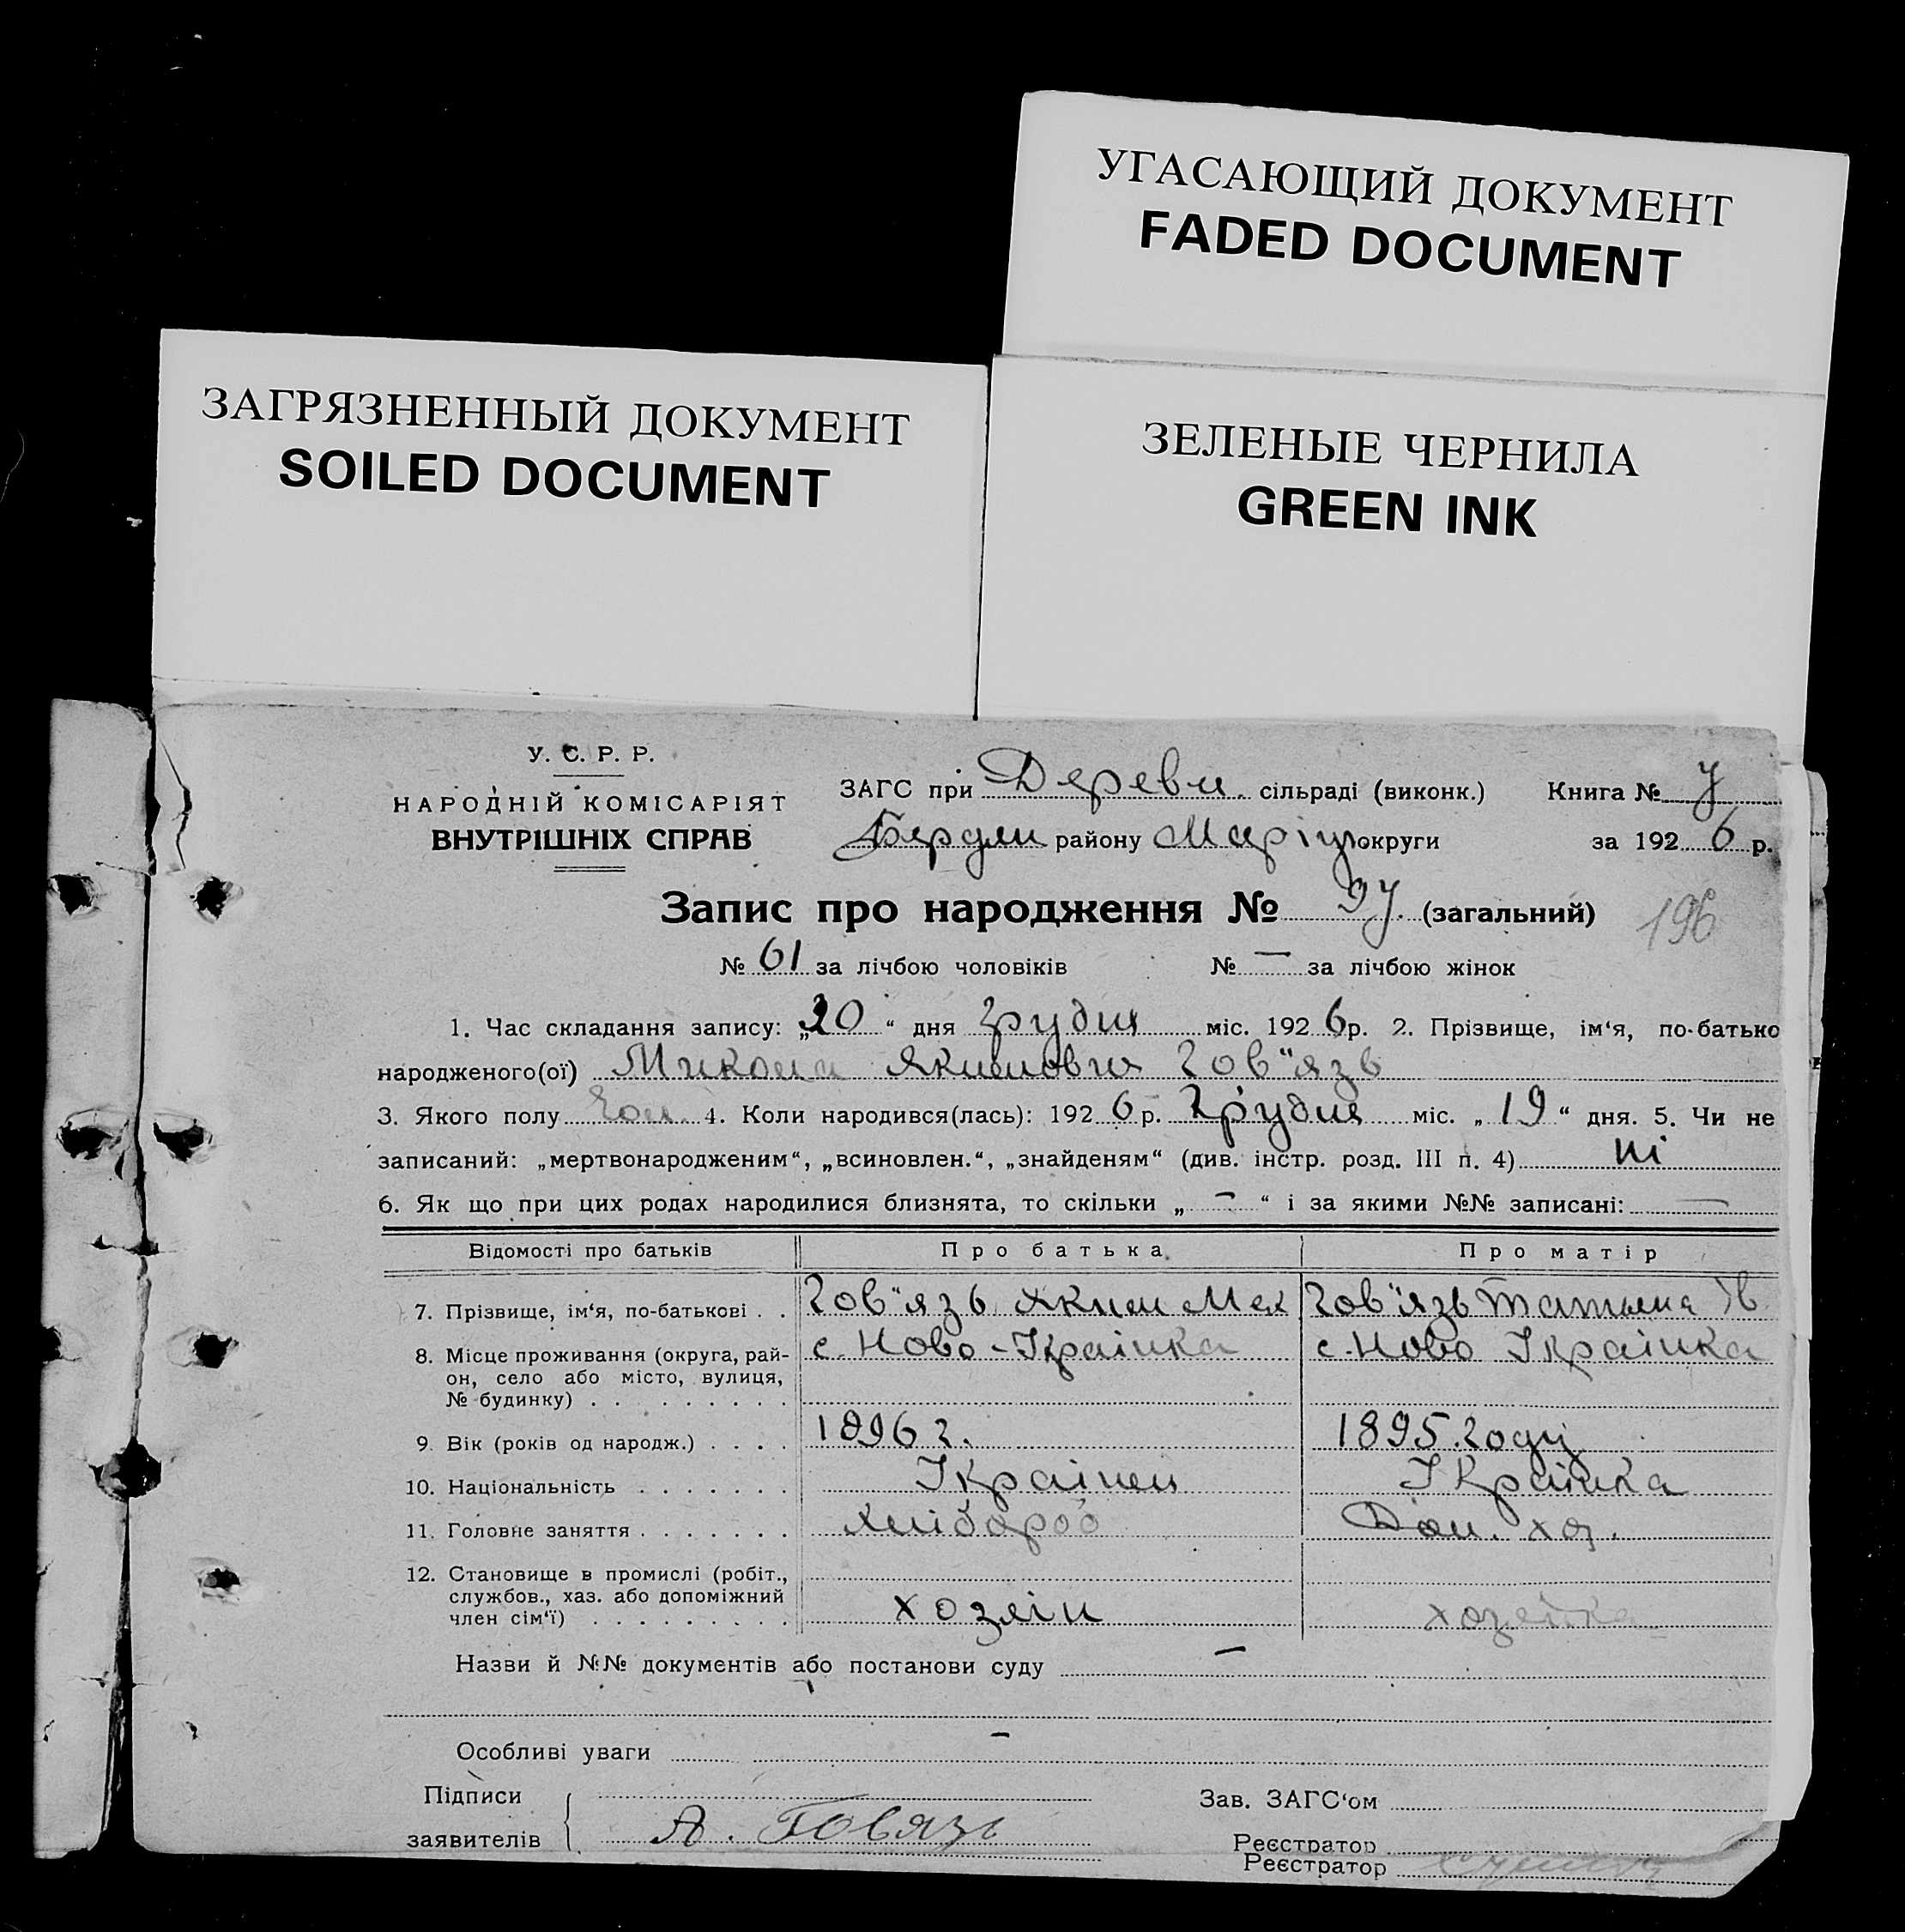 УГАСАЮЩИЙ ДОКУМЕНТ
FADED DOCUMENT
ЗАГРЯЗНЕННЫЙ ДОКУМЕНТ
SOILED DOCUMENT
ЗЕЛЕНЫЕ ЧЕРНИЛА
GREEN INK
У. С. Р. Р.
НАРОДНІЙ КОМІСАРІЯТ
ВНУТРІШНІХ СПРАВ
ЗАГС при Дереви. сільраді (виконк.) Книга №
Бердян району Маріуп округи за 1926 р.
Запис про народження № 97. (загальний) 196
№ 61 за лічбою чоловіків № — за лічбою жінок
1. Час складання запису: „20“ дня Грудня міс. 1926 р. 2. Прізвище, ім‘я, по-батько
народженого(ої) Микола Якимович Гов"язь
3. Якого полу Чол. 4. Коли народився(лась): 1926 р. Грудня міс. „19“ дня. 5. Чи не
записаний: „мертвонародженим“, „всиновлен.“, „знайденям“ (див. інстр. розд. III п. 4) ні
6. Як що при цих родах народилися близнята, то скільки „ — “ і за якими №№ записані: —
Відомості про батьків Про батька Про матір
7. Прізвище, ім‘я, по-батькові . . Гов"язь Яким Гов"язь Татьяна Ів
8. Місце проживання (округа, рай- с. Ново-Українка с. Ново Українка
он, село або місто, вулиця,
№ будинку) . . . . . . . . .
9. Вік (років од народж.) . . . . 1896 г. 1895. году
10. Національність . . . . . . . Українец Українка
11. Головне заняття . . . . . . . Хлібороб Дом. хоз.
12. Становище в промислі (робіт.,
службов., хаз. або допоміжний
член сім‘ї) . . . . . . . . . хозяін хозяйка
Назви й №№ документів або постанови суду —
Особливі уваги —
Підписи Зав. ЗАГС‘ом
заявителів А. Говязь
Реєстратор
Реєстратор